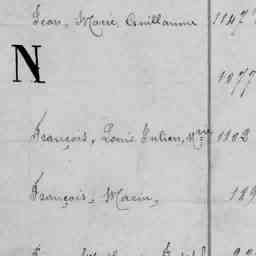 Jean, Marie, Guillaume 1147
N
1077
François, Louis Julien, Mme 1102
François, Marin, 129